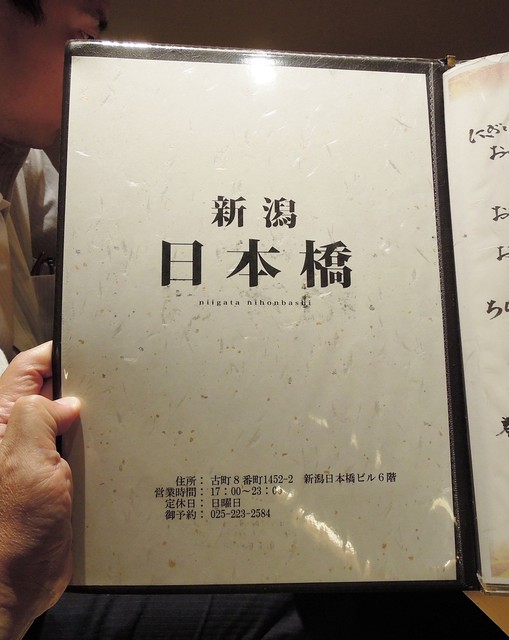 新潟
日本橋
niigata nihonbashi
住所：古町８番町1452-2　新潟日本橋ビル６階
営業時間：17：00〜23：00
定休日：日曜日
御予約：025-223-2584
にぎり
お
お
お